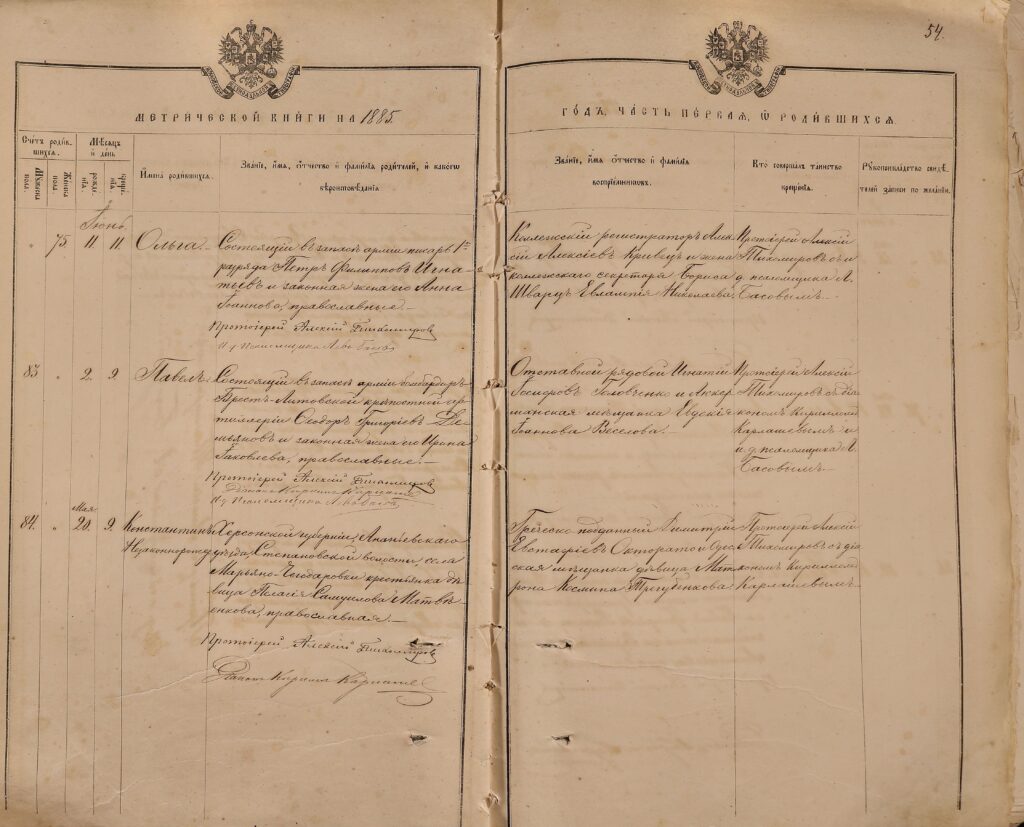 54.
МЕТРИЧЕСКОЙ КНИГИ НА 1885
ГОДЪ, ЧАСТЬ ПЕРВАЯ, Ѡ РОДИВШИХСЯ.
Счетъ родив-
шихся.
Мужеска
пола.
Женска
пола
Мѣсяцъ
и день
рожде-
нія.
креще-
нія.
Имена родившихся.
Званіе, имя, отчество и фамилія родителей, и какого
вѣроисповѣданія
Званіе, имя отчество и фамилія
воспріемниковъ.
Кто совершалъ таинство
крещенія.
Рукоприкладство свидѣ-
телей записи по желанію.
Іюнь
" 75. 11. 11. Ольга.
Состоящій въ запасѣ арміи писарь 1го
разряда Петръ Филипповъ Игна-
тьевъ и законная жена его Анна
Іоаннова, православные.
Протоіерей Алексій Тихомировъ
И. д. Псаломщика Левъ Басовъ
Коллежскій регистраторъ Алек-
сій Алексіевъ Кривецъ и жена
коллежскаго секретаря Бориса
Шварцъ Евлампія Николаева.
Протоіерей Алексій
Тихомировъ съ и.
д. псаломщика Л.
Басовымъ.
83. " 2. 9. Павелъ.
Состоящій въ запасѣ арміи бомбардиръ
Брестъ-Литовской крѣпостной ар-
тиллеріи Ѳеодоръ Григоріевъ Де-
мьяновъ и законная жена его Ирина
Іаковлева, православные.
Протоіерей Алексій Тихомировъ
Діаконъ Кириллъ Карлашевъ
И. д. Псаломщика Л. Басовъ
Отставной рядовой Игнатій
Головченко и Аккер-
манская мѣщанка Евдокія
Іоаннова Веселова.
Протоіерей Алексій
Тихомировъ съ діа-
кономъ Кирилломъ
Карлашевымъ и
и. д. псаломщика Л.
Басовымъ.
Мая
84. " 20. 9. Константинъ
Незаконнорожд.
Херсонской губерніи, Ананьевскаго
уѣзда, Степановской волости, села
Марьяно-Чегодаровки крестьянка дѣ-
вица Пелагія Самуилова Матвѣ-
енкова, православная.
Протоіерей Алексій Тихомировъ
Діаконъ Кириллъ Карлашевъ
Греческо подданный Димитрій
Евстафіевъ и Одес-
ская мѣщанка дѣвица Мат-
рона Космина Трегубенкова.
Протоіерей Алексій
Тихомировъ съ діа-
кономъ Кирилломъ
Карлашевымъ.